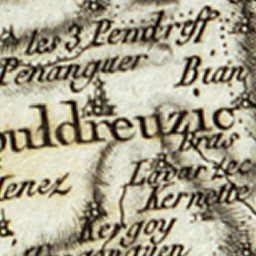 les 3 Pemdreff
Penanguer
Bian
ouldreuzic
Bras
Lavarzec
enez
Kernette
Kergoy